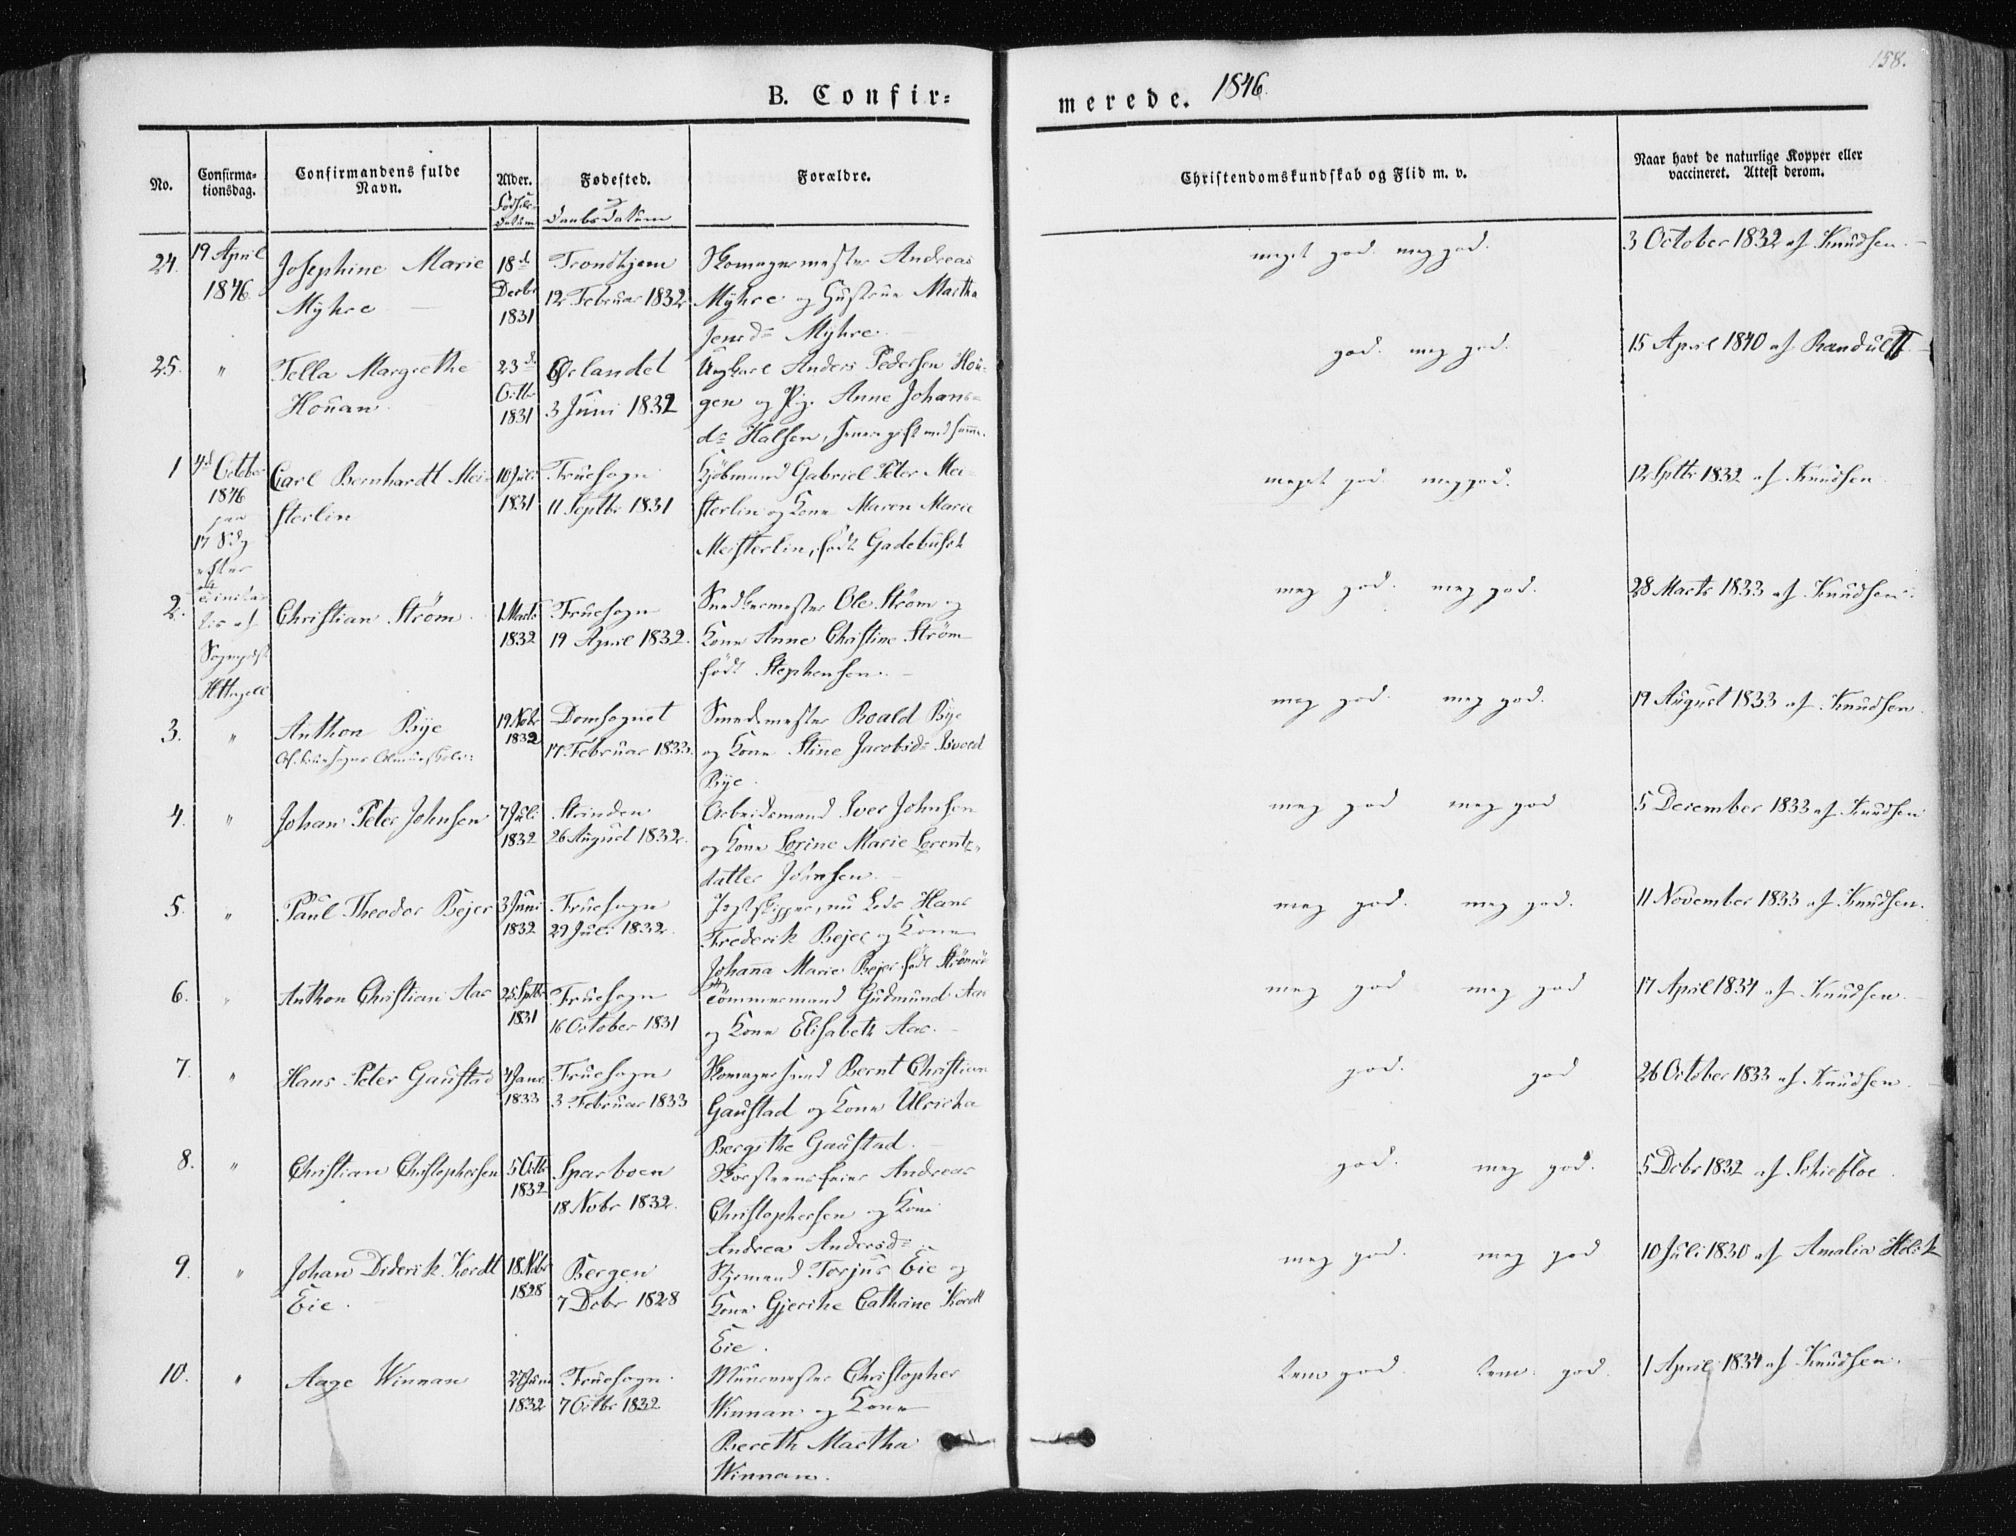 158.
B. Confir=
merede. 1846.
No.
Confirma-
tionsdag.
Confirmandens fulde
Navn.
Alder.
Fødsels-
datum
Fødested.
Daabsdatum
Forældre.
Christendomskundskab og Flid m. v.
Naar havt de naturlige Kopper eller
vaccineret. Attest derom.
24.
19 April
1846.
Josephine Marie
Myhre
18d
Decbr
1831
Trondhjem
12 Februar 1832
Skomagermester Andreas
Myhre og Hustrue Martha
Jensd= Myhre.
meget god. meg god.
3 October 1832 af Knudsen.
25.
"
Tella Margrethe
Houan
23d
Octbr
1831
Ørlandet
3 Juni 1832
Ungkarl Anders Pedersen Hou-
gen og Pig. Anne Johans-
d= Halsen,
god. meg god.
15 April 1840 af Randulff
1
4d October
1846
paa
17 Sdg
efter
Trinita-
tis af
Sognepst
Carl Bernhardt Mei-
sterlin
10 Juli
1831
Fruesogn
11 Septbr 1831
Kjøbmand Gabriel Peter Mei-
sterlin og Kone Maren Marie
Meisterlin, født Gadebusch
meget god. meg god.
12 Sptbr 1832 af Knudsen
2.
Christian Strøm
1 Marts
1832
Fruesogn
19 April 1832.
Snedkermester Ole Strøm og
Kone Anne Christine Strøm
født Stephensen.
meg god. meg god.
28 Marts 1833 af Knudsen.
3.
"
Anthon Bye
19 Nobr
1832
Domsognet
17 Februar 1833.
Smedemester Roald Bye
og Kone Stine Jacobsd=
Bye
meg god. meg god.
19 August 1833 af Knudsen.
4.
"
Johan Peter Johnsen
7 Juli
1832
Strinden
26 August 1832.
Arbeidsmand Iver Johnsen
og Kone Lorine Marie Lorentz-
datter Johnsen.
meg god meg god
5 December 1833 af Knudsen
5.
"
Paul Theodor Bejer
3 Juni
1832
Fruesogn
29 Juli 1832.
Jagtskipper, nu Lods Hans
Frederik Bejer og Kone
Johanna Marie Bejer født
meg god. meg god.
11 November 1833 af Knudsen.
6.
"
Anthon Christian Aas
25 Sptbr
1831
Fruesogn
16 October 1831
Tømmermand Gudmund Aas
og Kone Elisabeth Aas.
meg god meg god
17 April 1834 af Knudsen.
7.
"
Hans Peter Gaustad
4 Janr
1833
Fruesogn
3 Februar 1833
Skomagersvend Bernt Christian
Gaustad og Kone Ulricha
Bergithe Gaustad.
god. god
26 October 1833 af Knudsen
8.
"
Christian Christophersen
5 Octbr
1832
Sparboen
18 Nobr 1832.
Skorsteensfeier Andreas
Christophersen og Kone
Andrea Andersd=
god. meg god.
5 Debr 1832 af Schiefloe.
9.
"
Johan Diderik Kordt
Eie.
18 Nobr
1828
Bergen
7 Debr 1828
Styrmand Torjus Eie og
Kone Gjerthe Cathrine Kordt
Eie.
meg god. meg god
10 Juli 1830 af Amalia Holck
10.
"
Aage Winnan
27 Juni
1832
Fruesogn.
7 Octbr 1832
Muurmester Christopher
Winnan og Kone
Bereth Martha
Winnan.
tem god. tem. god.
1 April 1834 af Knudsen.